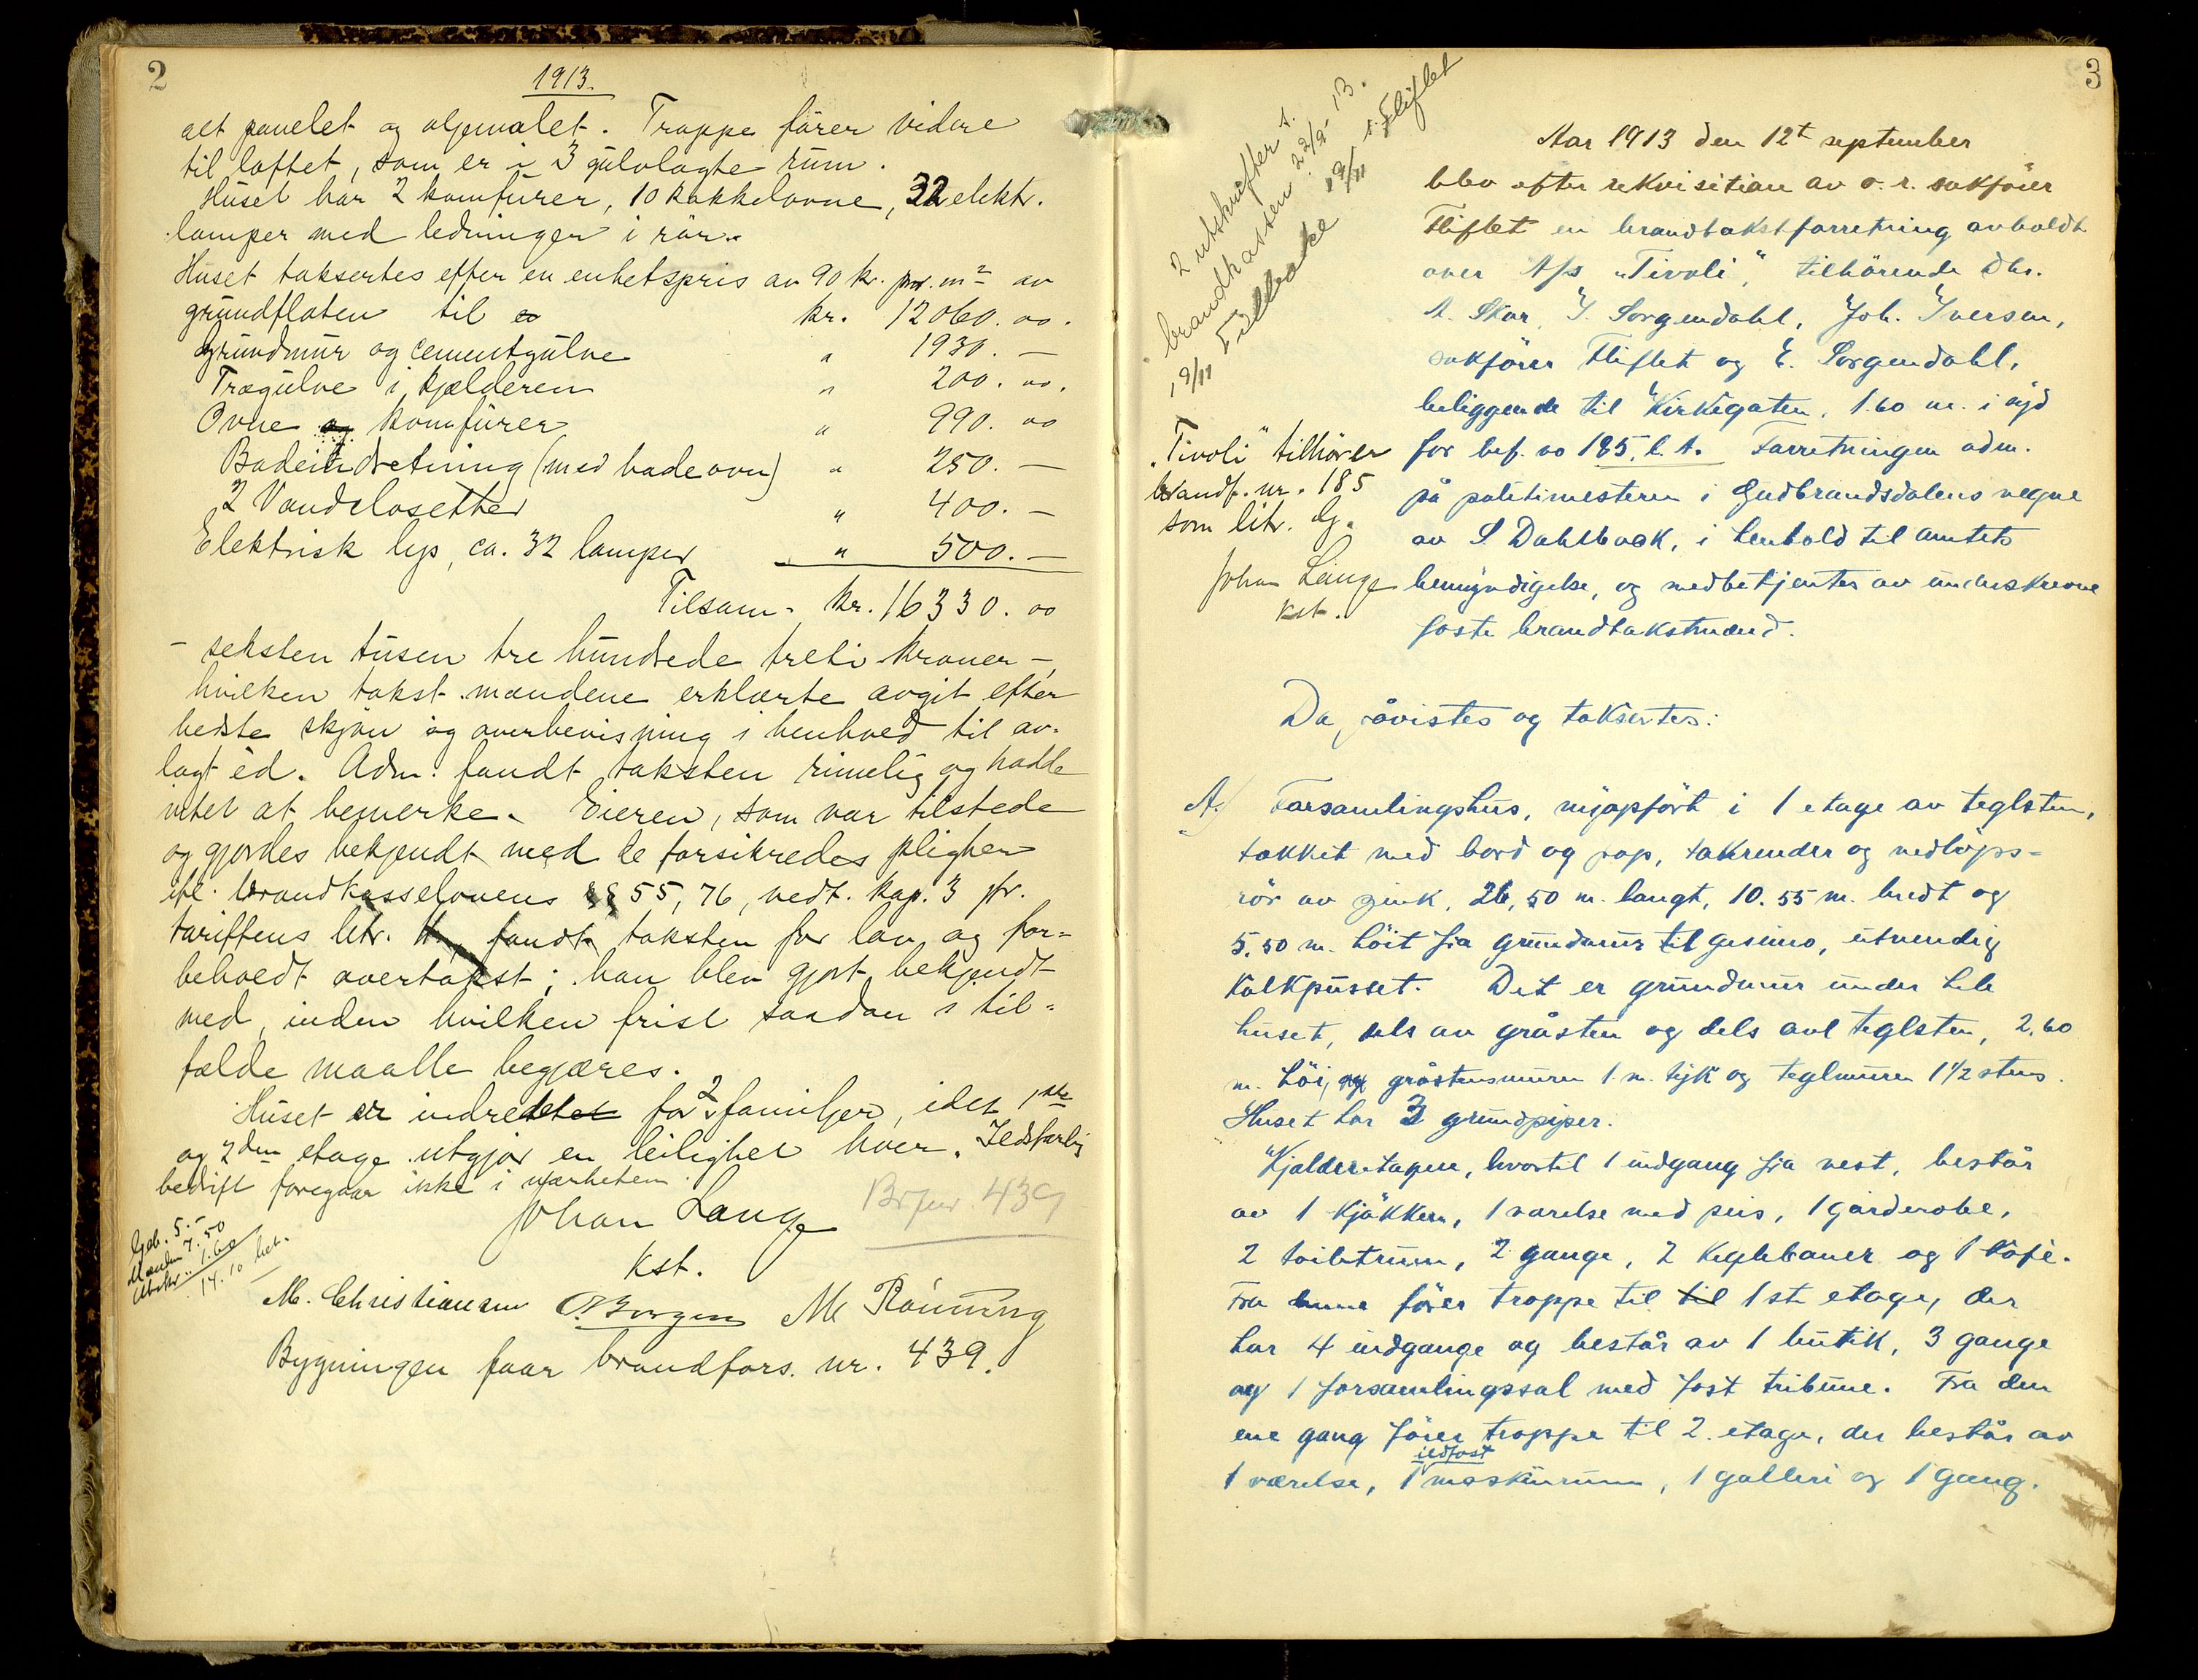 2
1913.
alt panelet og oljemalet. Trappe fører videre
til loftet, som er i 3 gulvlagte rum.
Huset har 2 komfurer, 10 kakkelovne, 32 elektr.
lamper med ledninger i rör.
Huset takseres efter en enhetspris av 90 kr. pr. m² av
grundflaten til kr. 12060. oo.
Grundmur og cementgulve " 1930. —
Trægulve i kjælderen " 200. oo.
Ovne og komfurer " 990. oo
Badeindretning (med badeovn) " 250. —
2 Vandclosetter " 400. —
Elektrisk lys, ca. 32 lamper " 500. —
Tilsam. kr. 16330. oo
– seksten tusen tre hundrede treti kroner –,
hvilken takst mændene erklærte avgit efter
bedste skjön og overbevisning i henhold til av-
lagt ed. Adm. fandt taksten rimelig og hadde
intet at bemerke. Eieren, som var tilstede
og gjordes bekjendt med de forsikredes pligter
ifl. brandkasselovens §§ 55, 76, vedt. kap. 3 jfr.
tariffens litr. H, fandt taksten for lav og for-
beholdt overtakst; han blev gjort bekjendt
med, inden hvilken frist saadan i til-
fælde maatte begjæres.
Huset er indrettet for 2 familjer, idet 1ste
og 2den etage utgjør en leilighet hver. Ildsfarlig
bedrift foregaar ikke i nærheten.
Br.fnr. 439
Johan Lange
kst.
Geb. 5.-
Mænden 7.50
Utskr. 1.60
14.10 bet.
M. Christiansen O. Borgen M Rönning
Bygningen faar brandfors. nr. 439.
3
2 utskrifter t.
brandkassen 22/9-13.
19/11 Tilbake 19/11 t. Fliflet
Aar 1913 den 12t september
blev efter rekvisition av o. r. sakförer
Fliflet en brandtakstforretning avholdt
over A/s "Tivoli", tilhörende Dhr.
A. Skar, I. Sorgendahl, Joh. Iversen,
sakförer Fliflet og E. Sorgendahl,
beliggende til Kirkegaten, 1.60 m. i syd
for bef. no 185, l. A. Forretningen adm.
på politimesteren i Gudbrandsdalens vegne
av S. Dahlbaak, i henhold til amtets
bemyndigelse, og medbetjentes av underskrevne
faste brandtakstmænd.
"Tivoli" tilhører
brandf. nr. 185
som litr. G.
Johan Lange
kst.
Da påvistes og taksertes:
A. Forsamlingshus, nyopfört i 1 etage av teglsten,
takket med bord og pap, takrender og nedlöps-
rör av zink, 26,50 m. langt, 10.55 m. bredt og
5.50 m. höit fra grundmur til gesims, utvendig
kalkpusset. Det er grundmur under hele
huset, dels av gråsten og dels avl teglsten, 2.60
m. höi, gråstensmuren 1 m. tyk og teglmuren 1½ stens.
Huset har 3 grundpiper.
Kjælderetagen, hvortil 1 indgang fra vest, består
av 1 kjökken, 1 værelse med peis, 1 garderobe,
2 toiletrum, 2 gange, 2 keglebaner og 1 kafe.
Fra denne förer trappe til til 1ste etage, der
har 4 indgange og består av 1 butik, 3 gange
og 1 forsamlingssal med fast tribune. Fra den
ene gang förer trappe til 2. etage, der består av
1 værelse, 1 ildfast maskinrum, 1 galleri og 1 gang.